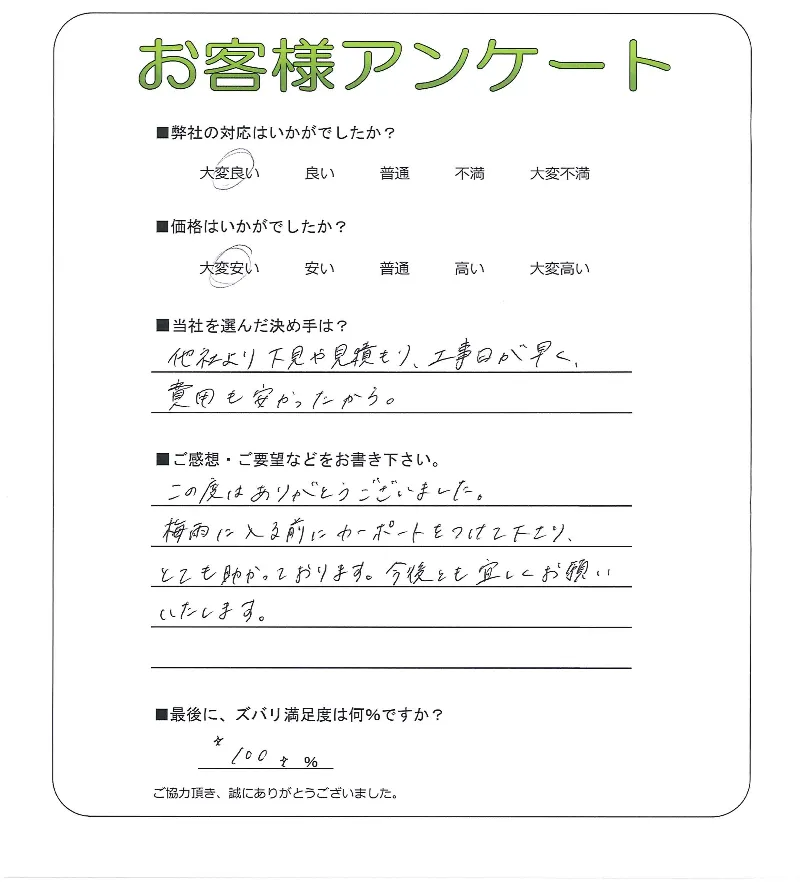 お客様アンケート
■弊社の対応はいかがでしたか？
大変良い 良い 普通 不満 大変不満
■価格はいかがでしたか？
大変安い 安い 普通 高い 大変高い
■当社を選んだ決め手は？
他社より下見や見積もり、工事日が早く、
費用も安かったから。
■ご感想・ご要望などをお書き下さい。
この度はありがとうございました。
梅雨に入る前にカーポートをつけて下さり、
とても助かっております。今後とも宜しくお願い
いたします。
■最後に、ズバリ満足度は何％ですか？
☆100☆ ％
ご協力頂き、誠にありがとうございました。